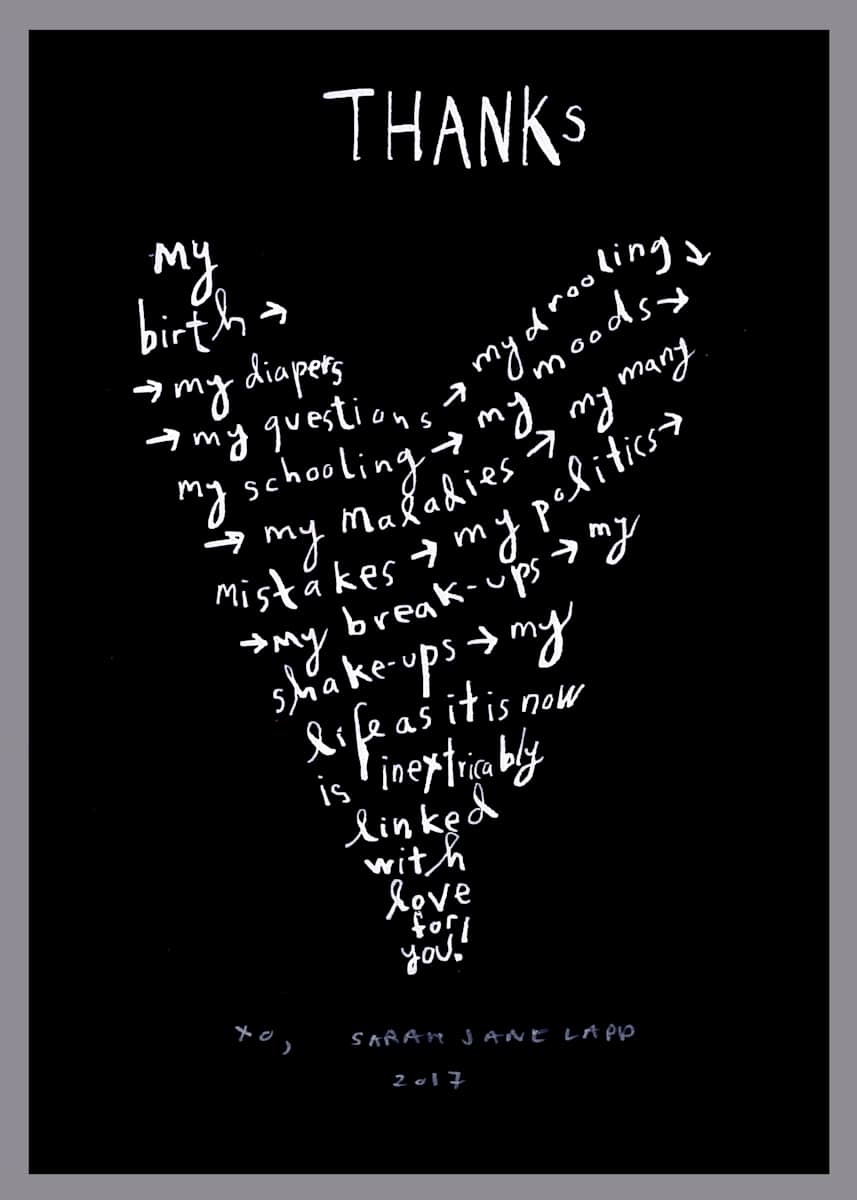 THANKS
My
birth →
→ my diapers
→ my questions → my drooling ↘
my schooling → my moods →
→ my maladies → my many
mistakes → my politics →
→ My break-ups → my
shake-ups → my
life as it is now
is inextricably
linked
with
love
for
you!
xo, SARAH JANE LAPP
2017